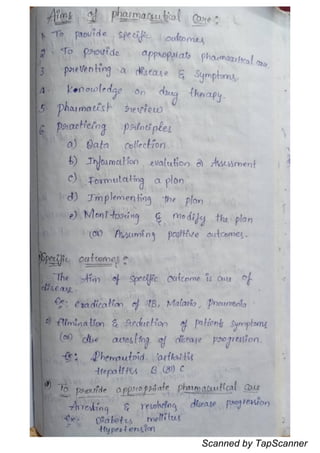 Aims of pharmaceutical care:
1. To provide specific outcomes
2. To provide appropriate pharmaceutical care,
3 preventing a disease & symptoms
4. Knowledge on drug therapy.
5 pharmacist review
6 practicing principles
a) Data collection
b) Information evalution or Assessment
c) Formutating a plan
d) Implementing the plan
e) Monitoring & modify the plan
(or) Assuming positive outcomes.
Specific outcomes:
The Aim of specific outcome is cure of
disease.
Ex: eradication of TB, Malaria, pneumonia
Elimination & reduction of patient symptoms
(or) the arresting of disease progression.
Ex: Rhemautoid arthritis
Hepatitis B (or) C
To provide appropriate pharmaceutical care
Arresting & resolving disease progression
Ex: Diabetes mellitus
Hypertension
Scanned by TapScanner